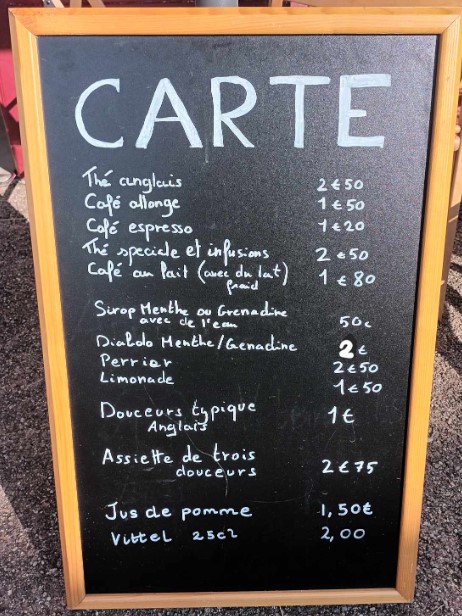 CARTE
Thé anglais 2€50
Café allonge 1€50
Café espresso 1€20
Thé speciale et infusions 2€50
Café au lait (avec du lat) 1€80
froid
Sirop Menthe ou Grenadine
avec de l'eau 50c
Diabolo Menthe/Genadine 2€
Perrier 2€50
Limonade 1€50
Douceurs typique 1€
Anglais
Assiette de trois
douceurs 2€75
Jus de pomme 1,50€
Vittel 25cl 2,00